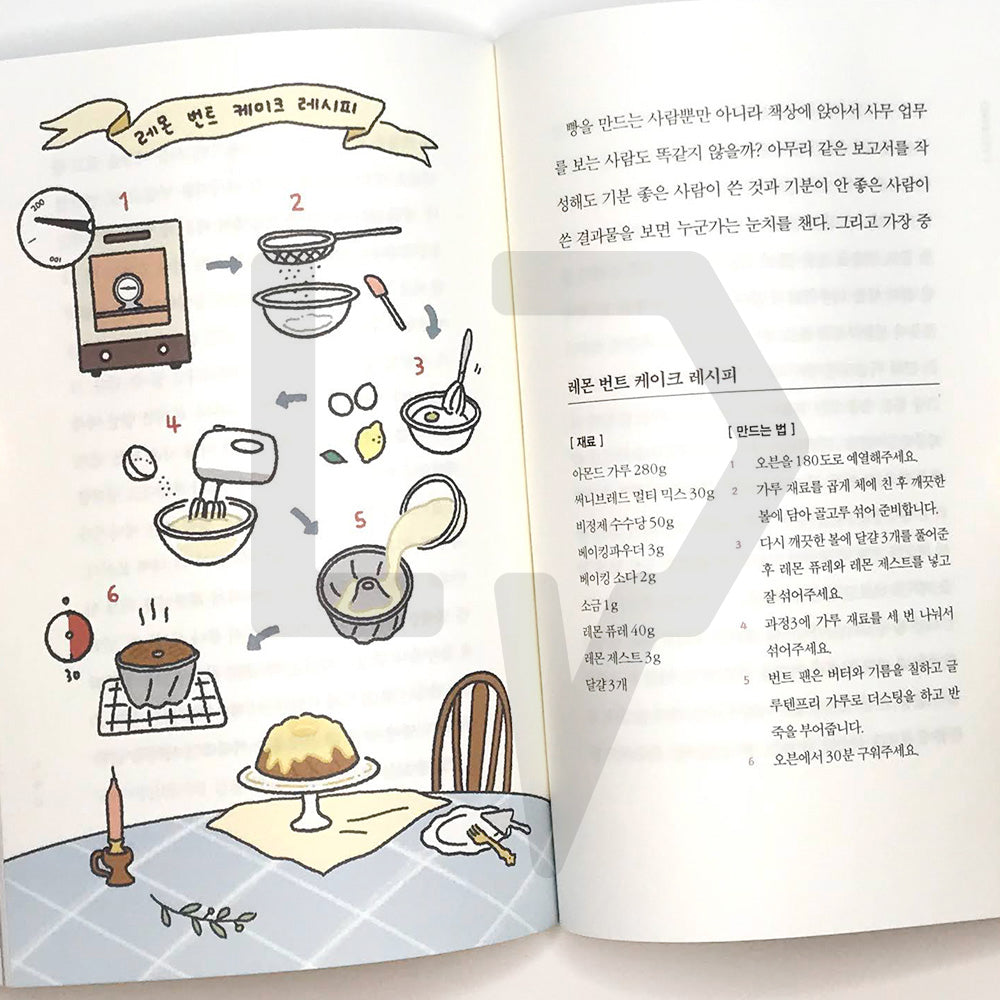 레몬 번트 케이크 레시피
1
200
100
2
3
4
5
6
30
빵을 만드는 사람뿐만 아니라 책상에 앉아서 사무 업무
를 보는 사람도 똑같지 않을까? 아무리 같은 보고서를 작
성해도 기분 좋은 사람이 쓴 것과 기분이 안 좋은 사람이
쓴 결과물을 보면 누군가는 눈치를 챈다. 그리고 가장 중
레몬 번트 케이크 레시피
[ 재료 ]
아몬드 가루 280g
써니브레드 멀티 믹스 30g
비정제 수수당 50g
베이킹파우더 3g
베이킹 소다 2g
소금 1g
레몬 퓨레 40g
레몬 제스트 3g
달걀 3개
[ 만드는 법 ]
1 오븐을 180도로 예열해주세요.
2 가루 재료를 곱게 체에 친 후 깨끗한
볼에 담아 골고루 섞어 준비합니다.
3 다시 깨끗한 볼에 달걀 3개를 풀어준
후 레몬 퓨레와 레몬 제스트를 넣고
잘 섞어주세요.
4 과정3에 가루 재료를 세 번 나눠서
섞어주세요.
5 번트 팬은 버터와 기름을 칠하고 글
루텐프리 가루로 더스팅을 하고 반
죽을 부어줍니다.
6 오븐에서 30분 구워주세요.